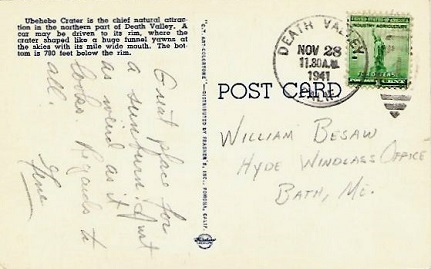 Ubehebe Crater is the chief natural attrac-
tion in the northern part of Death Valley. A
car may be driven to its rim, where the
crater shaped like a huge funnel yawns at
the skies with its mile wide mouth. The bot-
tom is 780 feet below the rim.
Great place for
a sunburn. Just
as weird as it
looks. Regards to
all
Gene
"C.T. ART-COLORTONE"—DISTRIBUTED BY FRASHER'S, INC., POMONA, CALIF.
DEATH VALLEY
NOV 28
11:30 A.M.
1941
CALIF.
POST CARD
WILLIAM BESAW
HYDE WINDLASS OFFICE
BATH, ME.